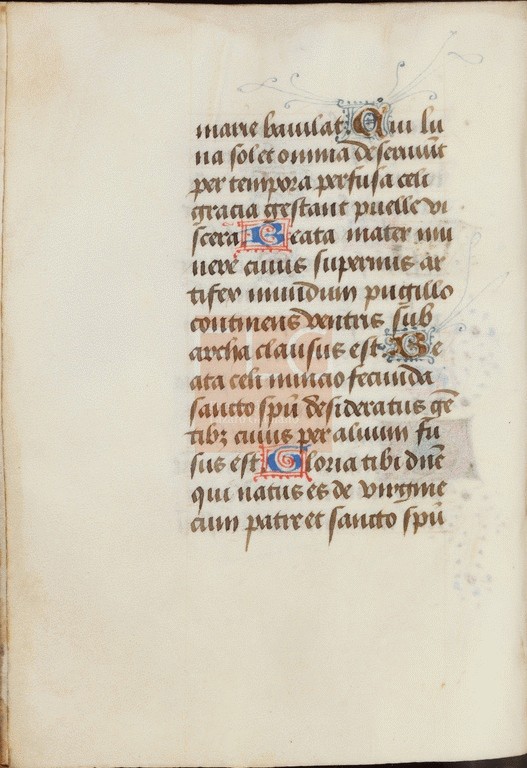 marie baiulat. Qui lu
na sol et omnia deseruiūt
per tempora perfusa celi
gracia gestant puelle vi
scera Beata mater mu
nere cuius supernus ar
tifex mundum pugillo
continens ventris sub
archa clausus est. Be
ata celi nuncio fecunda
sancto spū desideratus gē
tibꝫ cuius per aluum fu
sus est Gloria tibi dn̄e
qui natus es de virgine
cum patre et sancto spū